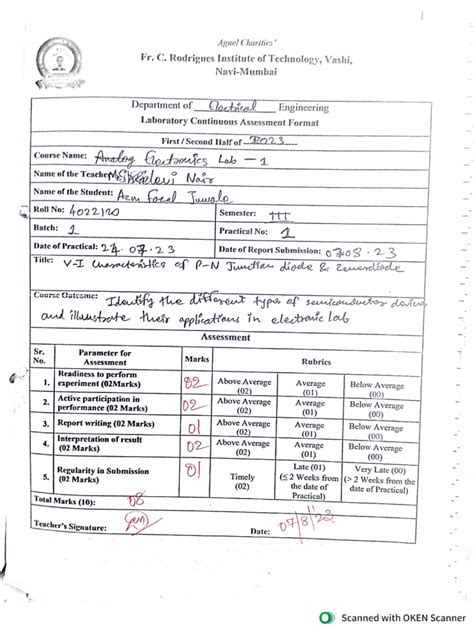 Agnel Charities'
Fr. C. Rodrigues Institute of Technology, Vashi,
Navi-Mumbai
Department of Electrical Engineering
Laboratory Continuous Assessment Format
First / Second Half of 2023
Course Name: Analog Electronics Lab - 1
Name of the Teacher: Nair
Name of the Student:
Roll No: 4022120 Semester: III
Batch: 1 Practical No: 1
Date of Practical: 24.07.23 Date of Report Submission: 0708.23
Title: V-I Characteristics of P-N Junction diode & Zenerdiode
Course Outcome: Identify the different types of semiconductor devices
and illustrate their applications in electronic lab
Assessment
Sr. No. Parameter for Assessment Marks Rubrics
1. Readiness to perform experiment (02Marks) 02 Above Average (02) Average (01) Below Average (00)
2. Active participation in performance (02Marks) 02 Above Average (02) Average (01) Below Average (00)
3. Report writing (02 Marks) 01 Above Average (02) Average (01) Below Average (00)
4. Interpretation of result (02Marks) 02 Above Average (02) Average (01) Below Average (00)
5. Regularity in Submission (02 Marks) 01 Timely (02) Late (01) (≤ 2 Weeks from the date of Practical) Very Late (00) (> 2 Weeks from the date of Practical)
Total Marks (10): 08
Teacher's Signature: Date: 07/8/23
Scanned with OKEN Scanner